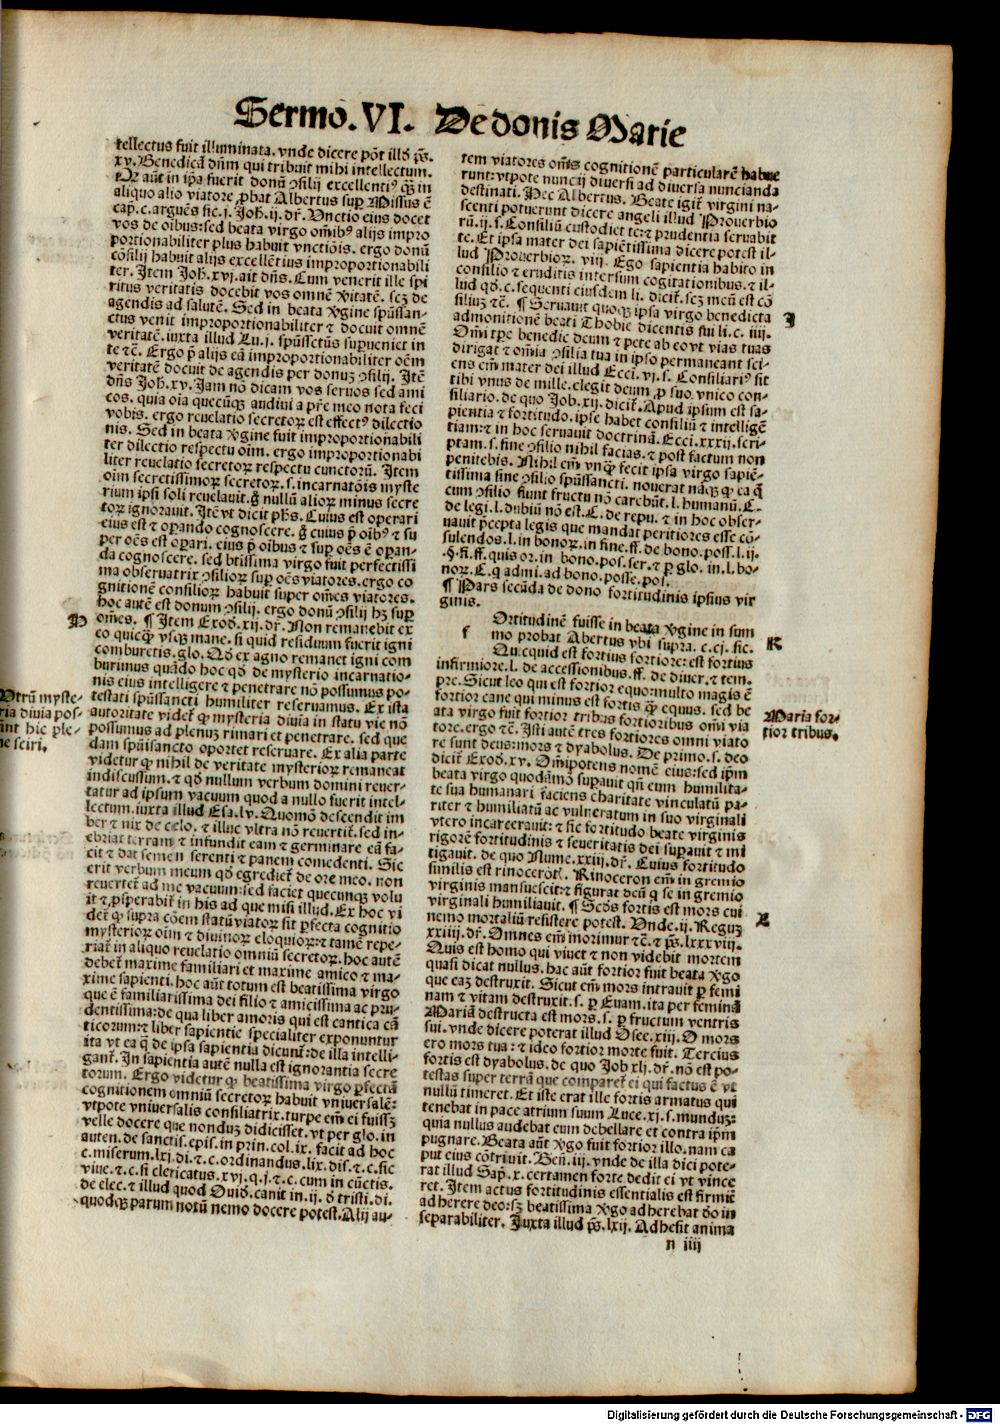 Sermo.VI. De donis Marie
tellectus fuit illuminata. vnde dicere põt illđ ps̃.
xv. Benedicã dñm qui tribuit mihi intellectum.
Qꝛ aũt in ip̃a fuerit donũ ↄsilij excellentiꝰ qᷓꝫ in
aliquo alio viatore ꝓbat Albertus suꝑ Missus ẽ
cap̃.c.arguẽs sic.j. Joħ.ij.dr̃. Vnctio eius docet
vos de oibus: sed beata virgo om̃ibꝰ alijs impro
portionabiliter plus habuit vnctiõis. ergo donũ
cõsilij habuit alijs excellẽtius improportionabili
ter. Item Joħ.xvj.ait dñs. Cum venerit ille spi
ritus veritatis docebit vos omnẽ ꝟitatẽ. scꝫ de
agendis ad salutẽ. Sed in beata ꝟgine spũssan-
ctus venit improportionabiliter ⁊ docuit omnẽ
veritatẽ. iuxta illud Lu.j. spũssctũs suꝑueniet in
te ⁊c̃. Ergo p̃ alijs eã improportionabiliter oẽm
veritatẽ docuit de agendis per donuꝫ ↄsilij. Itẽ
dñs Joħ.xv. Jam nõ dicam vos seruos sed ami
cos. quia oĩa quecũqꝫ audiui a pr̃e meo nota feci
vobis. ergo reuelatio secretoꝝ est effectꝰ dilectio
nis. Sed in beata ꝟgine fuit improportionabili
ter dilectio respectu oĩm. ergo improportionabi
liter reuelatio secretoꝝ respectu cunctorũ. Item
oĩm secretissimoꝝ secretoꝝ.s.incarnatõis myste
rium ipsi soli reuelauit. g̊ nullũ alioꝝ minus secre
toꝝ ignorauit. Itẽ vt dicit ph̃s. Cuius est operari
eius est ⁊ oꝑando cognoscere. g̊ cuius p̃ oĩbꝰ ⁊ su
per oẽs est oꝑari. eius p̃ oĩbus ⁊ suꝑ oẽs ẽ oꝑan-
da cognoscere. sed btĩssima virgo fuit perfectissi
ma obseruatrix ↄsilioꝝ suꝑ oẽs viatores. ergo co
gnitionẽ consilioꝝ habuit super om̃es viatores.
hoc autẽ est donum ↄsilij. ergo donũ ↄsilij hꝫ suꝑ
om̃es. ¶ Item Exođ.xij.dr̃. Non remanebit ex
eo quicqᷓꝫ vsqꝫ mane. si quid residuum fuerit igni
comburetis. glo. Qđ ex agno remanet igni com
burimus quãdo hoc qđ de mysterio incarnatio-
nis eius intelligere ⁊ penetrare nõ possumus po-
testati spũssancti humiliter reseruamus. Ex ista
autoritate videt᷑ ꝙ mysteria diuĩa in statu vie nõ
possumus ad plenuꝫ rimari et penetrare. sed que
dam spũisancto oportet reseruare. Ex alia parte
videtur ꝙ nihil de veritate mysterioꝝ remaneat
indiscussum. ⁊ qđ nullum verbum domini reuer-
tatur ad ipsum vacuum quod a nullo fuerit intel-
lectum. iuxta illud Esa.lv. Quomõ descendit im
ber ⁊ nix de celo. ⁊ illuc vltra nõ reuertit᷑. sed in-
ebriat terram ⁊ infundit eam ⁊ germinare eã fa-
cit ⁊ dat semen serenti ⁊ panem comedenti. Sic
erit verbum meum qđ egrediet᷑ de ore meo. non
reuertet᷑ ad me vacuum: sed faciet quecunqꝫ volu
it ⁊ ꝓsperabit᷑ in his ad que misi illud. Ex hoc vi
det᷑ ꝙ supra cõem statũ viatoꝝ sit ꝑfecta cognitio
mysterioꝝ oĩm ⁊ diuinoꝝ eloquioꝝ: ⁊ tamẽ repe-
riat᷑ in aliquo reuelatio omniũ secretoꝝ. hoc autẽ
debet᷑ maxime familiari et maxime amico ⁊ ma-
xime sapienti. hoc aũt totum est beatissima virgo
que ẽ familiarissima dei filio ⁊ amicissima ac pru-
dentissima: de qua liber amoris qui est cantica cã
ticorum: ⁊ liber sapientie specialiter exponuntur
ita vt ea q̃ de ipsa sapientia dicunt᷑: de illa intelli-
gant᷑. In sapientia autẽ nulla est ignorantia secre
torum. Ergo videtur ꝙ beatissima virgo ꝑfectã
cognitionem omniũ secretoꝝ habuit vniuersalẽ:
vtpote vniuersalis consiliatrix. turpe em̃ ei fuissꝫ
velle docere que nonduꝫ didicisset. vt per glo. in
auten. de sanctis. epis. in prin. col.ix. facit ad hoc
c.miserum.lxj.di. ⁊.c.ordinandus.lix.dis. ⁊.c.sic
viue. ⁊.c.si clericatus.xvj.q.j. ⁊.c.cum in cũctis.
de elec. ⁊ illud quod Ouiđ.canit in.ij.đ tristi.di.
quodqꝫ parum notũ nemo docere potest. Alij au-
P
Vtrũ myste-
ria diuĩa pos-
sint hic ple-
ne sciri.
tem viatores om̃is cognitionẽ particularẽ habue
runt: vtpote nuncij diuersi ad diuersa nuncianda
destinati. Hec Albertus. Beate igit᷑ virgini na-
scenti potuerunt dicere angeli illud Prouerbio
rũ.ij.s. Consiliũ custodiet te: ⁊ prudentia seruabit
te. Et ipsa mater dei sapiẽtissima dicere potest il-
lud Prouerbioꝝ.viij. Ego sapientia habito in
consilio ⁊ eruditis intersum cogitationibus. ⁊ il-
lud qđ.c.sequenti eiusdem li. dicit᷑. scꝫ meũ est cõ
siliuꝫ ⁊c̃. ¶ Seruauit quoqꝫ ipsa virgo benedicta
admonitionẽ beati Thobie dicentis sui li.c.iiij.
Om̃i tp̃e benedic deum ⁊ pete ab eo vt vias tuas
dirigat ⁊ om̃ia ↄsilia tua in ipso permaneant sci-
ens em̃ mater dei illud Ecci.vj.s. Consiliariꝰ sit
tibi vnus de mille. elegit deum ꝓ suo vnico con-
siliario. de quo Job.xij. dicit᷑. Apud ipsum est sa-
pientia ⁊ fortitudo. ipse habet consiliũ ⁊ intelligẽ
tiam: ⁊ in hoc seruauit doctrinã. Ecci.xxxij.scri-
ptam.s.sine ↄsilio nihil facias. ⁊ post factum non
penitebis. Nihil em̃ vnqᷓꝫ fecit ipsa virgo sapiẽ-
tissima sine ↄsilio spũssancti. nouerat naqꝫ ꝙ ea q̃
cum ↄsilio fiunt fructu nõ carebũt. l.humanũ.C.
de legi.l.dubiũ nõ est.C.de repu. ⁊ in hoc obser-
uauit p̃cepta legis que mandat peritiores esse cõ-
sulendos. l.in honoꝝ. in fine.ff.de bono.poss.l.ij.
.§.fi.ff.quis or.in bono.pos.ser. ⁊ ꝑ glo.in.l.bo-
noꝝ.C.q admi.ad bono.posse.pos.
¶ Pars secũda de dono fortitudinis ipsius vir
ginis.
f
Ortitudinẽ fuisse in beata ꝟgine in sum
mo probat Abertus vbi supra.c.cj.sic.
Quicquid est fortius fortiore: est fortius
infirmiore. l.de accessionibus.ff.de diuer. ⁊ tem-
pre. Sicut leo qui est fortior equo: multo magis ẽ
fortior cane qui minus est fortis qᷓꝫ equus. sed be
ata virgo fuit fortior tribus fortioribus om̃i via
tore. ergo ⁊c̃. Isti autẽ tres fortiores omni viato
re sunt deus: mors ⁊ dyabolus. De primo.s.deo
dicit᷑ Exođ.xv. Om̃ipotens nomẽ eius: sed ip̃m
beata virgo quodãmõ suꝑauit qñ eum humilita-
te sua humanari faciens charitate vinculatũ pa-
riter ⁊ humiliatũ ac vulneratum in suo virginali
vtero incarcerauit: ⁊ sic fortitudo beate virginis
rigorẽ fortitudinis ⁊ seueritatis dei suꝑauit ⁊ mi
tigauit. de quo Nume.xxiij.dr̃. Cuius fortitudo
similis est rinocerotꝭ. Rinoceron em̃ in gremio
virginis mansuescit: ⁊ figurat deũ q̃ se in gremio
virginali humiliauit. ¶ Scđs fortis est mors cui
nemo mortaliũ resistere potest. Vnde.ij. Reguꝫ
xxiiij.dr̃. Omnes em̃ morimur ⁊c̃. ⁊ ps̃.lxxxviij.
Quis est homo qui viuet ⁊ non videbit mortem
quasi dicat nullus. hac aũt fortior fuit beata ꝟgo
que eaꝫ destruxit. Sicut em̃ mors intrauit ꝑ femi
nam ⁊ vitam destruxit.s.ꝑ Euam. ita per feminã
Mariã destructa est mors.s.ꝑ fructum ventris
sui. vnde dicere poterat illud Osee.xiij. O mors
ero mors tua: ⁊ ideo fortior morte fuit. Tercius
fortis est dyabolus. de quo Job xlj.dr̃. nõ est po-
testas super terrã que comparet᷑ ei qui factus ẽ vt
nullũ timeret. Et iste erat ille fortis armatus qui
tenebat in pace atrium suum Luce.xj.s.munduꝫ:
quia nullus audebat eum debellare et contra ip̃m
pugnare. Beata aũt ꝟgo fuit fortior illo. nam ca
put eius cõtriuit. Beñ.iij. vnde de illa dici pote-
rat illud Sap̃.x. certamen forte dedit ei vt vince
ret. Item actus fortitudinis essentialis est firmiẽ
adherere deo: sꝫ beatissima ꝟgo adherebat đo in
separabiliter. Juxta illud ps̃.lxij. Adhesit anima
J
K
Maria for-
tior tribus.
L
n iiij
Digitalisierung gefördert durch die Deutsche Forschungsgemeinschaft - DFG